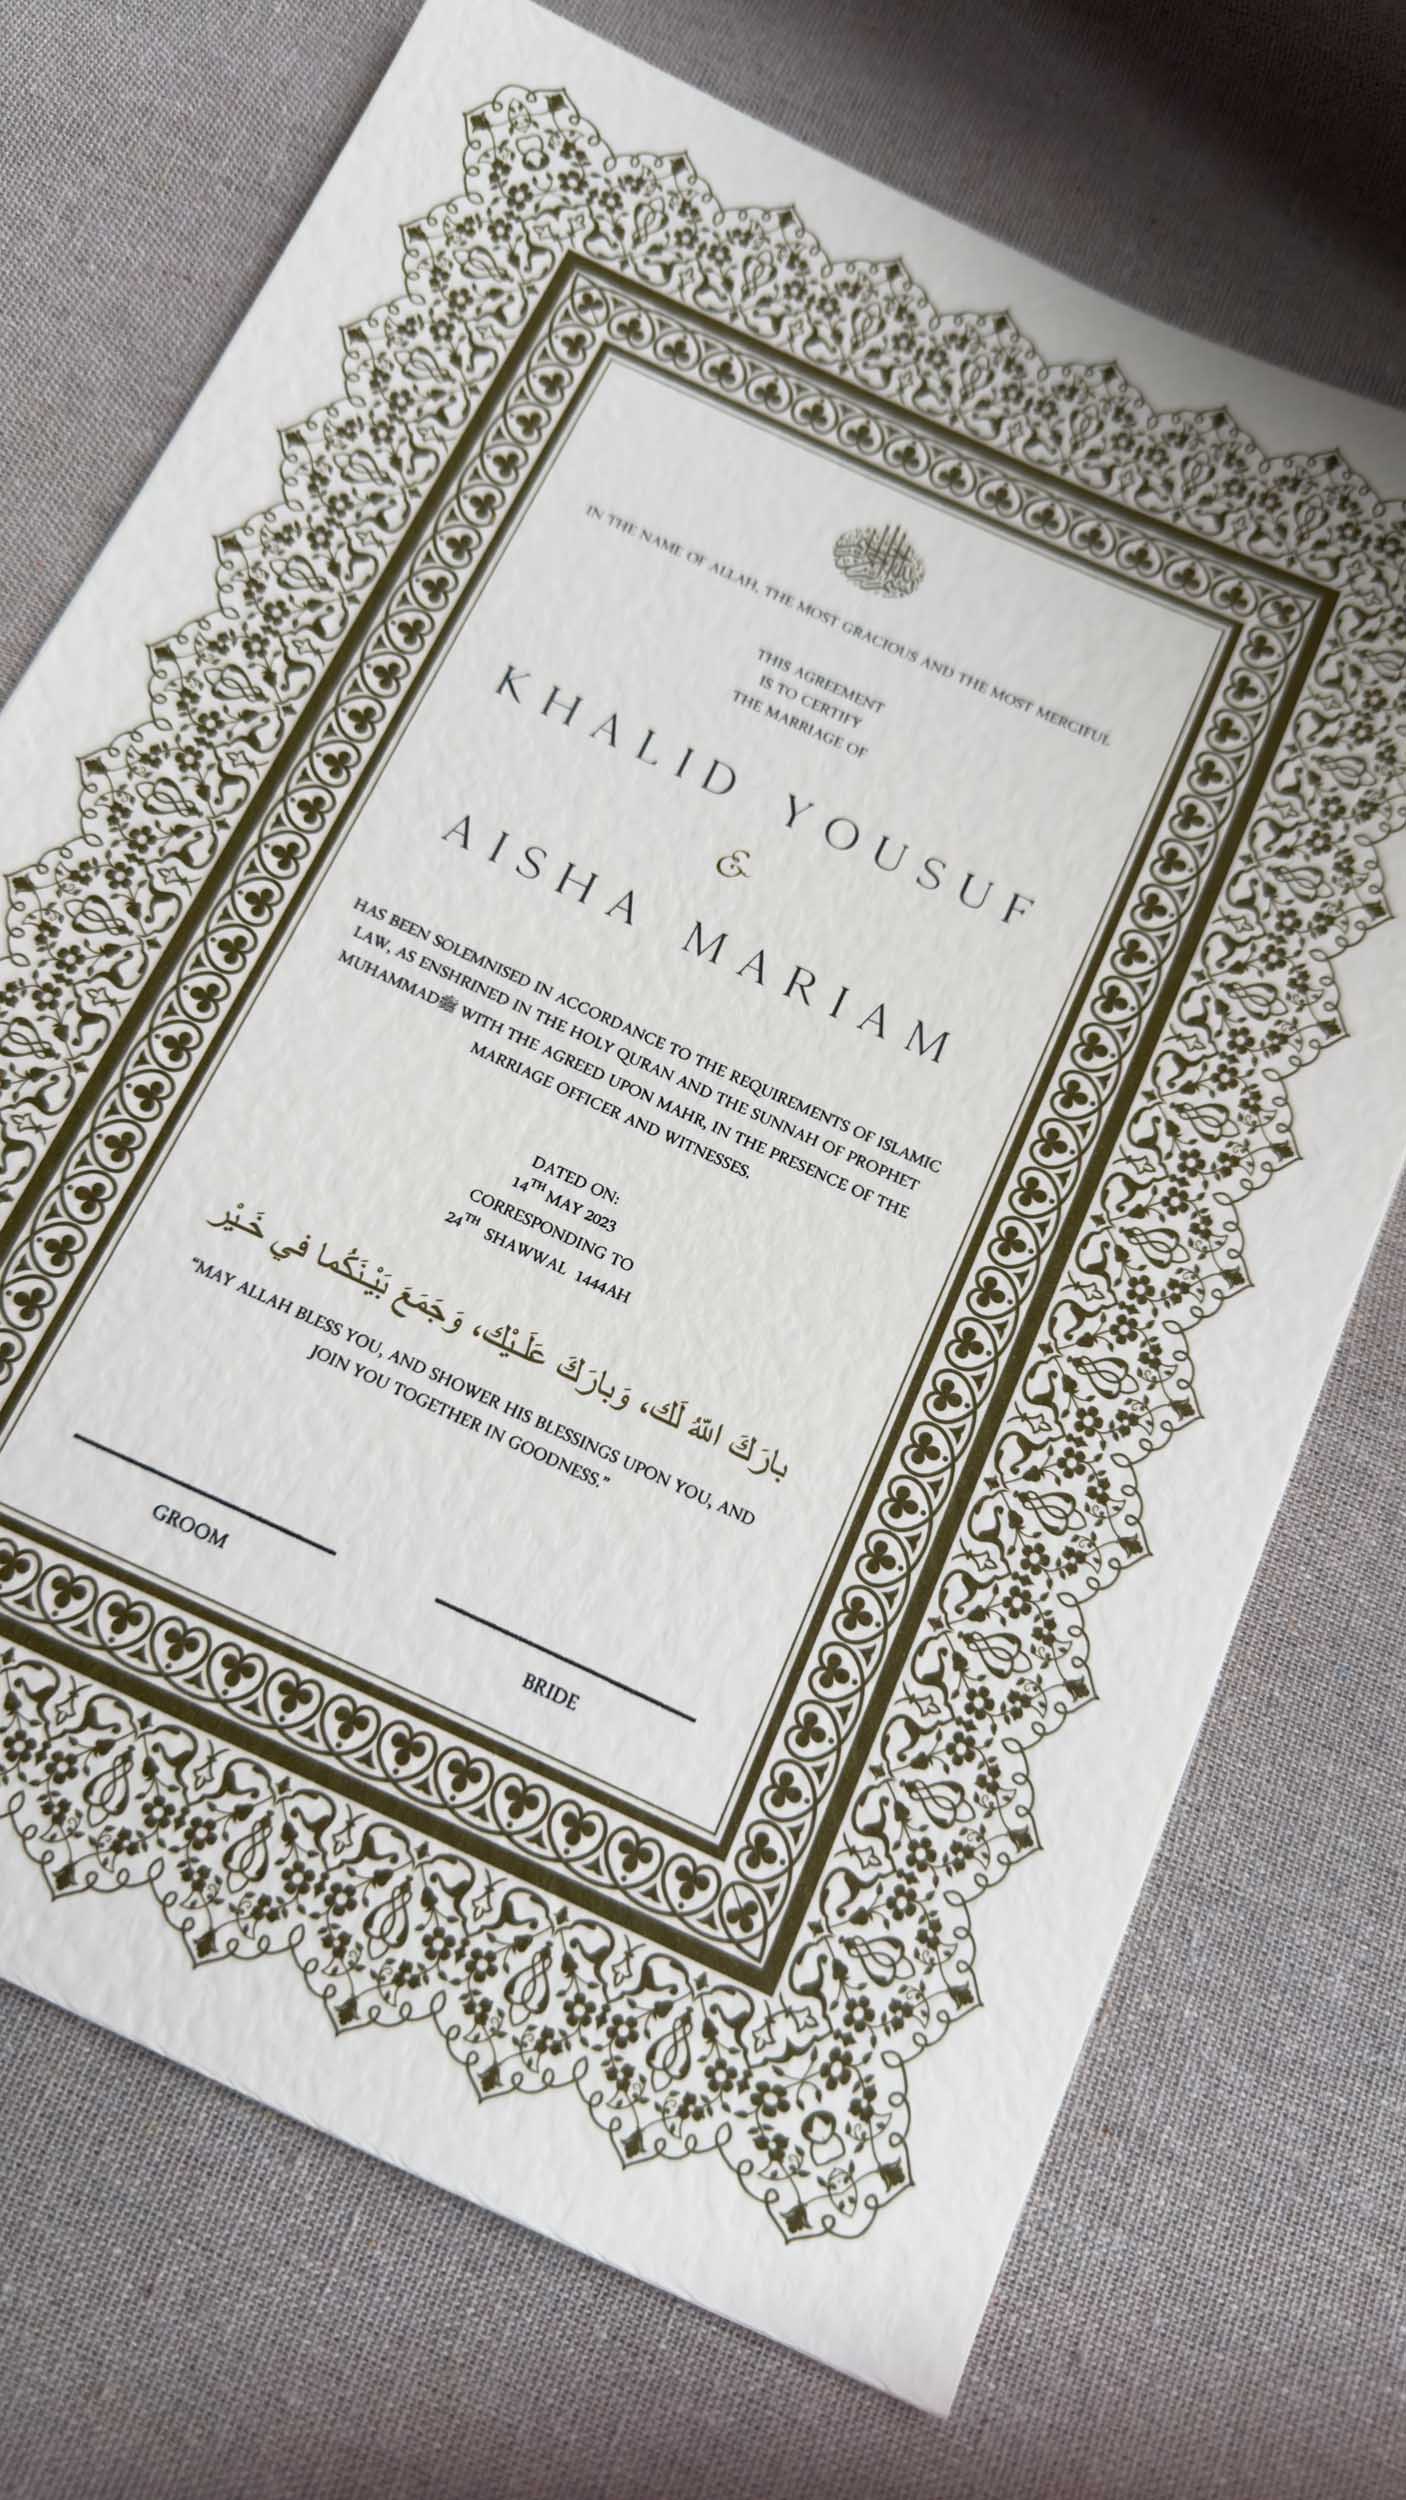 IN THE NAME OF ALLAH, THE MOST GRACIOUS AND THE MOST MERCIFUL
THIS AGREEMENT
IS TO CERTIFY
THE MARRIAGE OF
KHALID YOUSUF
&
AISHA MARIAM
HAS BEEN SOLEMNISED IN ACCORDANCE TO THE REQUIREMENTS OF ISLAMIC
LAW, AS ENSHRINED IN THE HOLY QURAN AND THE SUNNAH OF PROPHET
MUHAMMADﷺ WITH THE AGREED UPON MAHR, IN THE PRESENCE OF THE
MARRIAGE OFFICER AND WITNESSES.
DATED ON:
14TH MAY 2023
CORRESPONDING TO
24TH SHAWWAL 1444AH
بارَكَ اللّهُ لَكَ، وَبارَكَ عَلَـيْكَ، وَجَمَعَ بَيْـنَكُما في خَـيْر
"MAY ALLAH BLESS YOU, AND SHOWER HIS BLESSINGS UPON YOU, AND
JOIN YOU TOGETHER IN GOODNESS."
GROOM
BRIDE